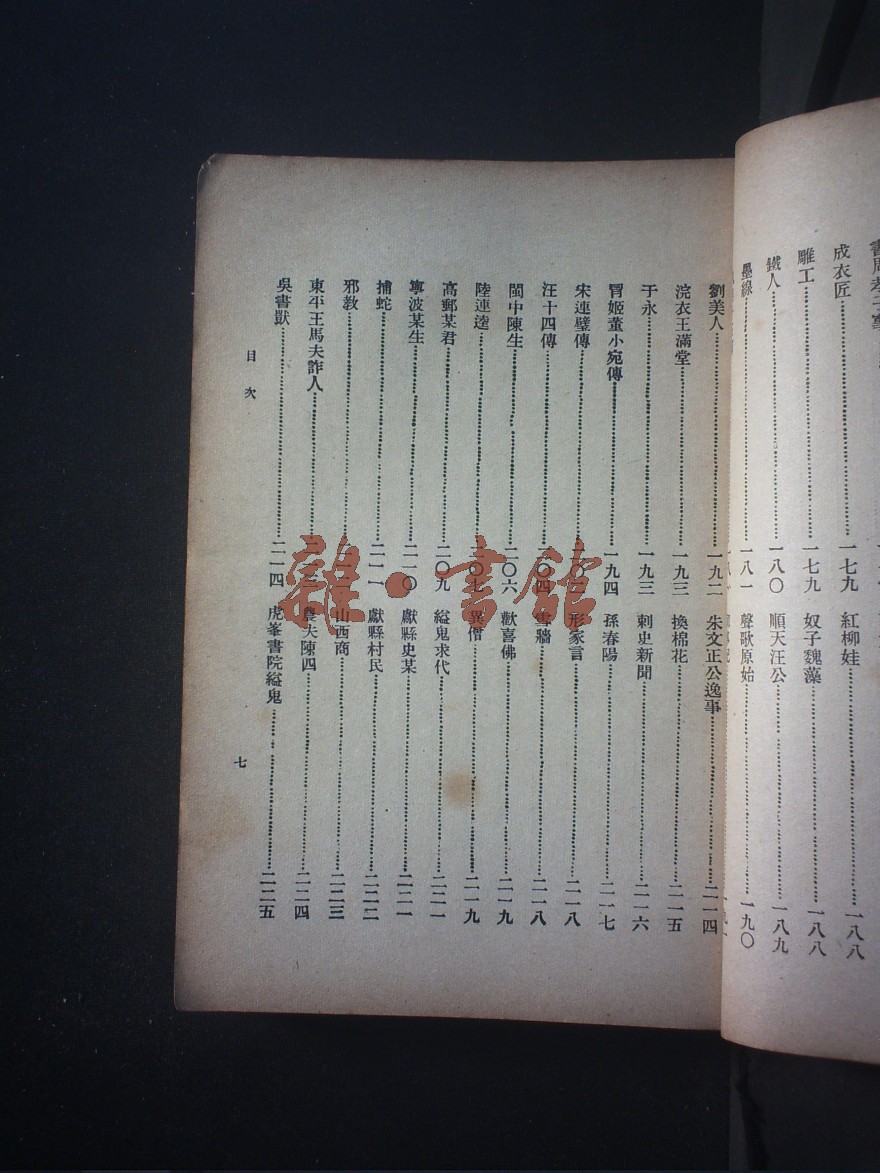 成衣匠……一七九 紅柳娃……一八八
雕工……一七九 奴子魏藻……一八八
鐵人……一八〇 順天汪公……一八九
墨線……一八一 聲歌原始……一九〇
劉美人……一九二 朱文正公逸事……二一四
浣衣王滿堂……一九三 換棉花……二一五
于永……一九三 刺史新聞……二一六
冒姬董小宛傳……一九四 孫春陽……二一七
宋連璧傳……二〇二 形家言……二一八
汪十四傳……二〇四 牆……二一八
閩中陳生……二〇六 歡喜佛……二一九
陸連逵……二〇七 異僧……二一九
高郵某君……二〇九 縊鬼求代……二二一
寧波某生……二一〇 獻縣史某……二二一
捕蛇……二一一 獻縣村民……二二二
邪教…… 山西商……二二三
東平王馬夫詐人…… 農夫陳四……二二四
吳書獃……二一四 虎峯書院縊鬼……二二五
目次
七
雜·書館